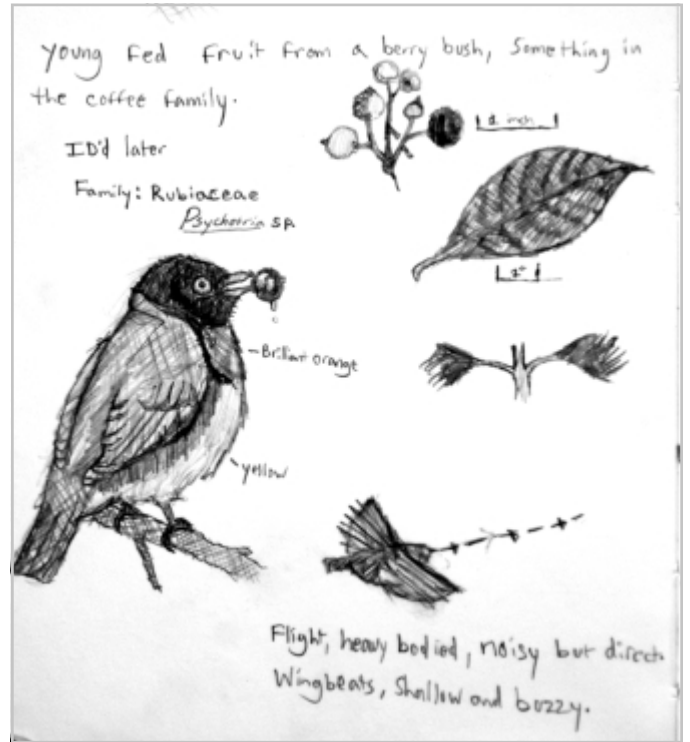 young fed fruit from a berry bush, something in
the coffee family.
ID'd later
Family: Rubiaceae
Psychotria sp.
1/2 inch
1"
Brilliant orange
yellow
Flight, heavy bodied, noisy but direct.
Wingbeats, shallow and buzzy.